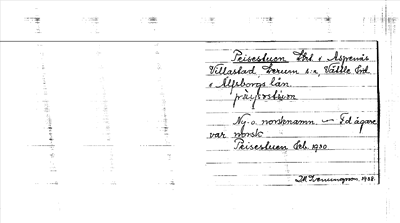 Peisestuen Lht i Aspenäs
Villastad Lerum s:n, Vättle hd
i Älfsborgs län.
Ny- o. norsknamn – Fd ägare
var norsk
Peisestuen Eeb. 1930
1938.